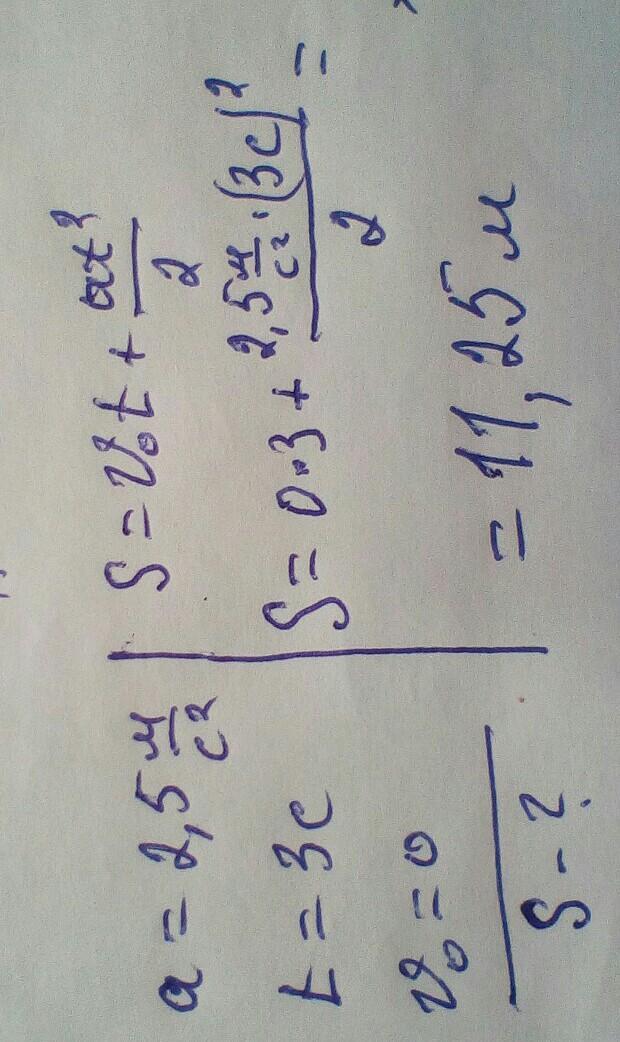 a = 2,5 м/с²
t = 3с
v₀ = 0
S - ?
S = v₀t + at²/2
S = 0·3 + 2,5 м/с² · (3с)²/2 =
= 11,25 м